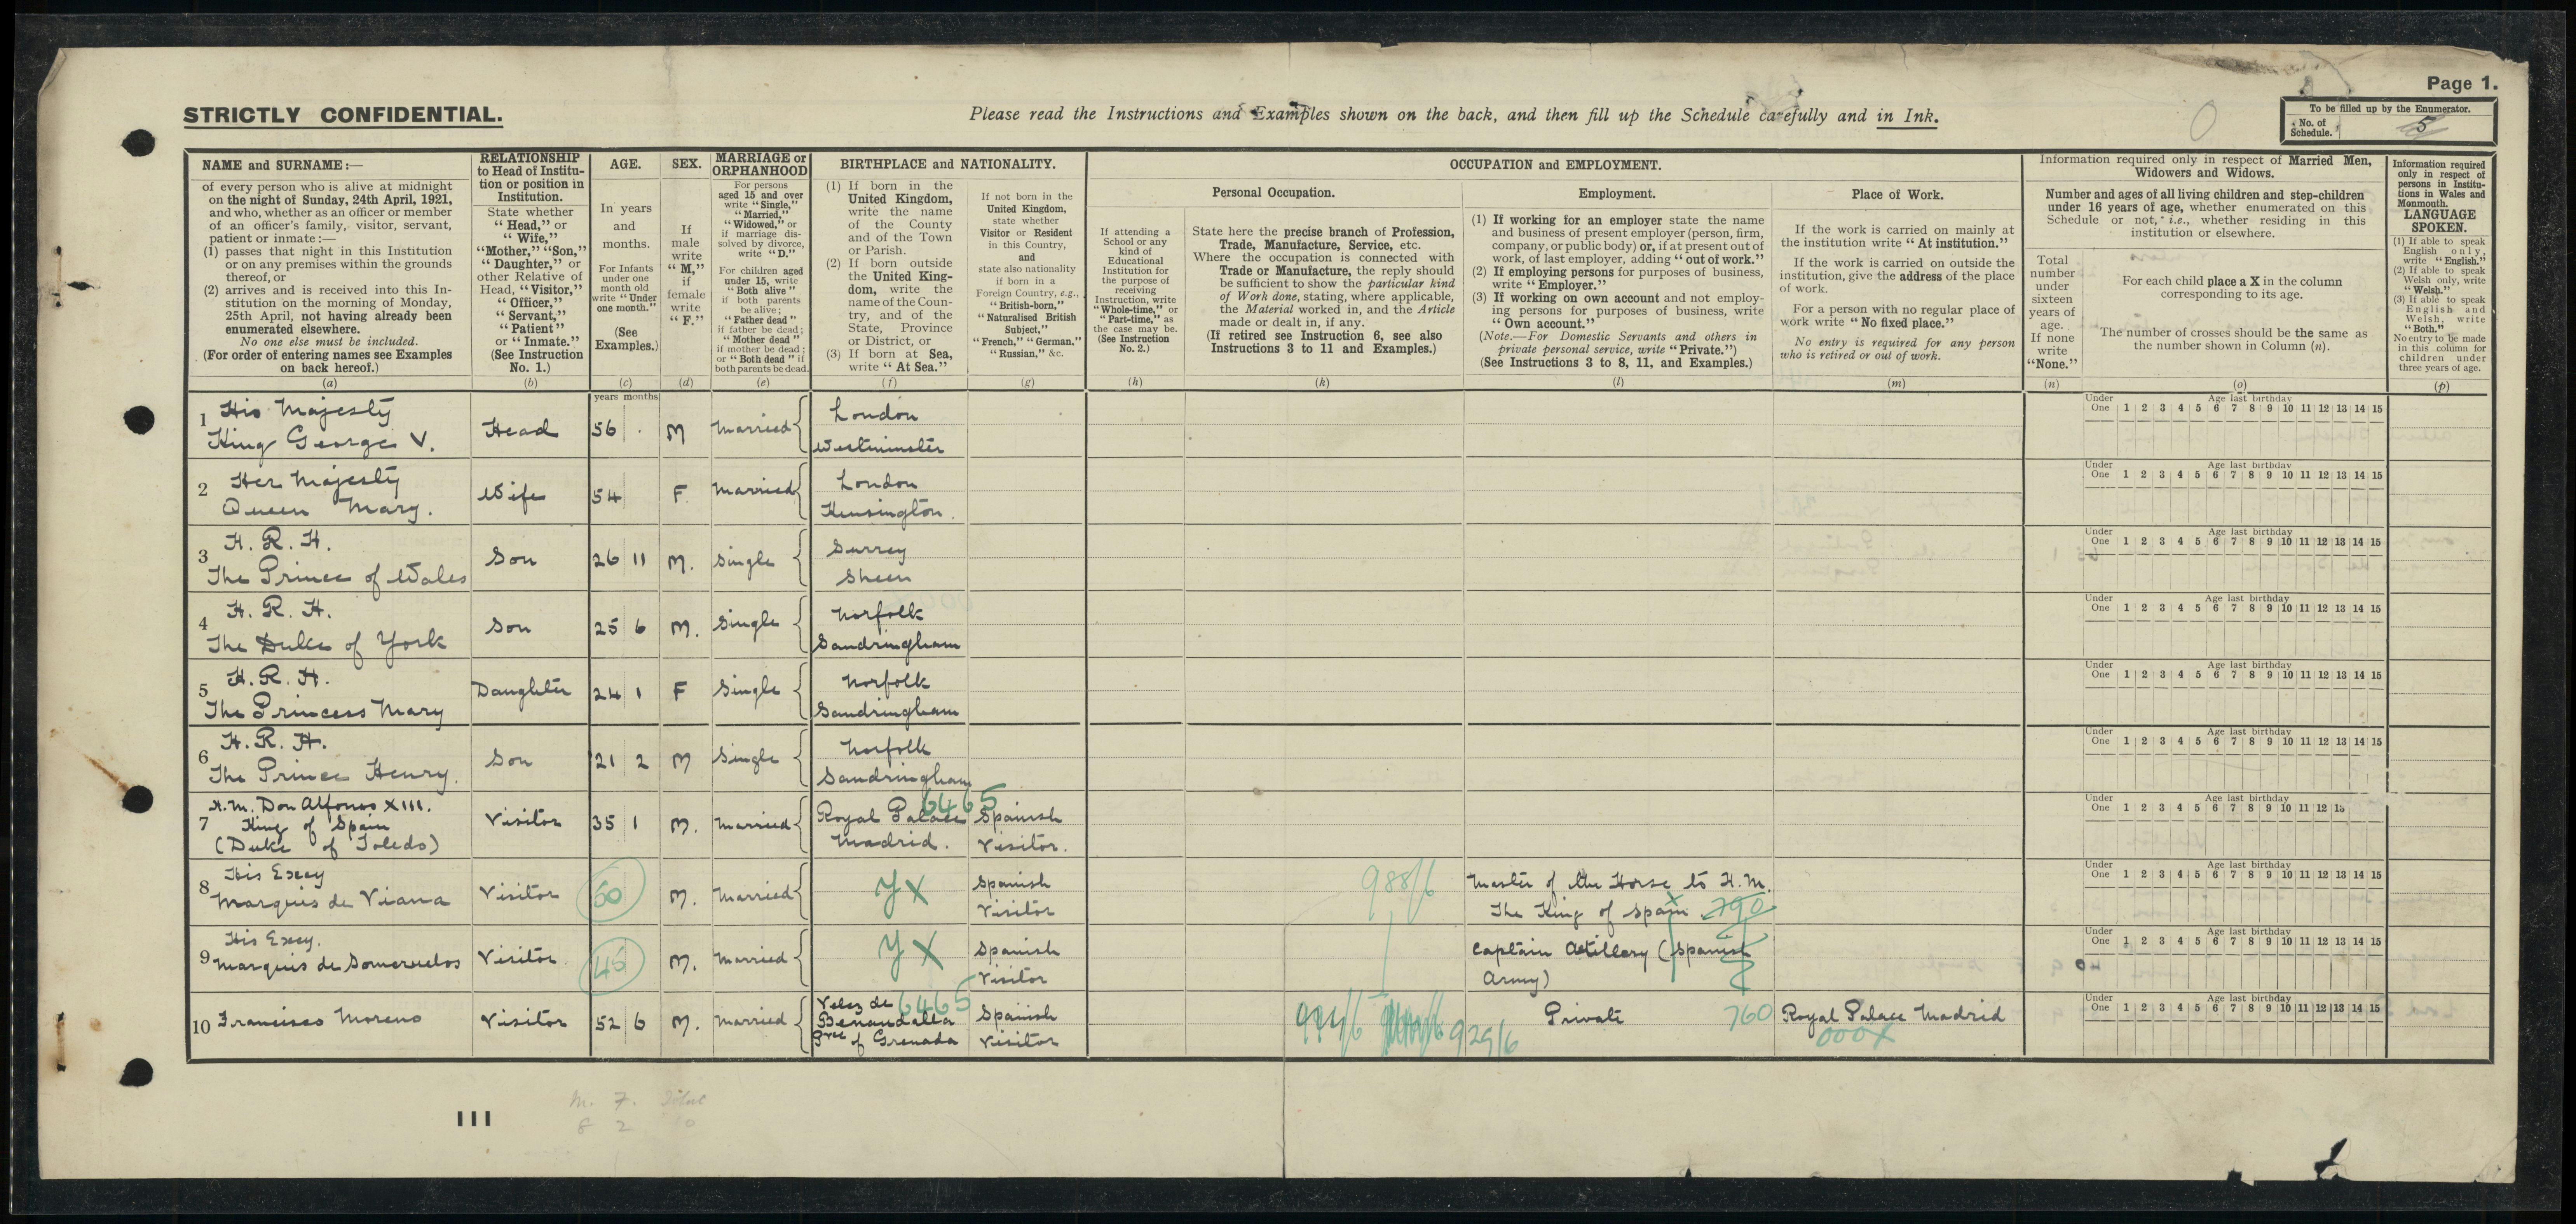 Page 1.
STRICTLY CONFIDENTIAL.
Please read the Instructions and Examples shown on the back, and then fill up the Schedule carefully and in Ink.
To be filled up by the Enumerator.
No. of Schedule. 5
NAME and SURNAME:—
of every person who is alive at midnight
on the night of Sunday, 24th April, 1921,
and who, whether as an officer or member
of an officer's family, visitor, servant,
patient or inmate:—
(1) passes that night in this Institution
or on any premises within the grounds
thereof, or
(2) arrives and is received into this In-
stitution on the morning of Monday,
25th April, not having already been
enumerated elsewhere.
No one else must be included.
(For order of entering names see Examples
on back hereof.)
(a)
RELATIONSHIP
to Head of Institu-
tion or position in
Institution.
State whether
"Head," or
"Wife,"
"Mother," "Son,"
"Daughter," or
other Relative of
Head, "Visitor,"
"Officer,"
"Servant,"
"Patient"
or "Inmate."
(See Instruction
No. 1.)
(b)
AGE.
In years
and
months.
For Infants
under one
month old
write "Under
one month."
(See
Examples.)
(c)
SEX.
If
male
write
"M,"
if
female
write
"F."
(d)
MARRIAGE or
ORPHANHOOD
For persons
aged 15 and over
write "Single,"
"Married,"
"Widowed," or
if marriage dis-
solved by divorce,
write "D."
For children aged
under 15, write
"Both alive"
if both parents
be alive;
"Father dead"
if father be dead;
"Mother dead"
if mother be dead;
or "Both dead" if
both parents be dead.
(e)
BIRTHPLACE and NATIONALITY.
(1) If born in the
United Kingdom,
write the name
of the County
and of the Town
or Parish.
(2) If born outside
the United King-
dom, write the
name of the Coun-
try, and of the
State, Province
or District, or
(3) If born at Sea,
write "At Sea."
(f)
If not born in the
United Kingdom,
state whether
Visitor or Resident
in this Country,
and
state also nationality
if born in a
Foreign Country, e.g.,
"British-born,"
"Naturalised British
Subject,"
"French," "German,"
"Russian," &c.
(g)
OCCUPATION and EMPLOYMENT.
Personal Occupation.
If attending a
School or any
kind of
Educational
Institution for
the purpose of
receiving
Instruction, write
"Whole-time," or
"Part-time," as
the case may be.
(See Instruction
No. 2.)
(h)
State here the precise branch of Profession,
Trade, Manufacture, Service, etc.
Where the occupation is connected with
Trade or Manufacture, the reply should
be sufficient to show the particular kind
of Work done, stating, where applicable,
the Material worked in, and the Article
made or dealt in, if any.
(If retired see Instruction 6, see also
Instructions 3 to 11 and Examples.)
(k)
Employment.
(1) If working for an employer state the name
and business of present employer (person, firm,
company, or public body) or, if at present out of
work, of last employer, adding "out of work."
(2) If employing persons for purposes of business,
write "Employer."
(3) If working on own account and not employ-
ing persons for purposes of business, write
"Own account."
(Note.—For Domestic Servants and others in
private personal service, write "Private.")
(See Instructions 3 to 8, 11, and Examples.)
(l)
Place of Work.
If the work is carried on mainly at
the institution write "At institution."
If the work is carried on outside the
institution, give the address of the place
of work.
For a person with no regular place of
work write "No fixed place."
No entry is required for any person
who is retired or out of work.
(m)
Information required only in respect of Married Men,
Widowers and Widows.
Number and ages of all living children and step-children
under 16 years of age, whether enumerated on this
Schedule or not, i.e., whether residing in this
institution or elsewhere.
Total
number
under
sixteen
years of
age.
If none
write
"None."
(n)
For each child place a X in the column
corresponding to its age.
The number of crosses should be the same as
the number shown in Column (n).
(o)
Information required
only in respect of
persons in Institu-
tions in Wales and
Monmouth.
LANGUAGE
SPOKEN.
(1) If able to speak
English only,
write "English."
(2) If able to speak
Welsh only, write
"Welsh."
(3) If able to speak
English and
Welsh, write
"Both."
No entry to be made
in this column for
children under
three years of age.
(p)
years months
1 His Majesty
King George V. Head 56 M Married London
Westminster
Under One Age last birthday 1 2 3 4 5 6 7 8 9 10 11 12 13 14 15
2 Her Majesty
Queen Mary. Wife 54 F. Married London
Kensington.
Under One Age last birthday 1 2 3 4 5 6 7 8 9 10 11 12 13 14 15
3 H. R. H.
The Prince of Wales Son 26 11 M. Single Surrey
Sheen
Under One Age last birthday 1 2 3 4 5 6 7 8 9 10 11 12 13 14 15
4 H. R. H.
The Duke of York Son 25 6 M. Single Norfolk
Sandringham
Under One Age last birthday 1 2 3 4 5 6 7 8 9 10 11 12 13 14 15
5 H. R. H.
The Princess Mary Daughter 24 1 F Single Norfolk
Sandringham
Under One Age last birthday 1 2 3 4 5 6 7 8 9 10 11 12 13 14 15
6 H. R. H.
The Prince Henry. Son 21 2 M Single Norfolk
Sandringham
Under One Age last birthday 1 2 3 4 5 6 7 8 9 10 11 12 13 14 15
7 H.M. Don Alfonso XIII.
King of Spain
(Duke of Toledo) Visitor 35 1 M. Married Royal Palace
Madrid. 6465 Spanish
Visitor.
Under One Age last birthday 1 2 3 4 5 6 7 8 9 10 11 12 13
8 His Excy
Marquis de Viana Visitor 50 M. Married YX Spanish
Visitor 988/6 Master of the Horse to H.M.
The King of Spain 790
Under One Age last birthday 1 2 3 4 5 6 7 8 9 10 11 12 13 14 15
9 His Excy.
Marquis de Someruelos Visitor 45 M. Married YX Spanish
Visitor Captain Artillery (Spanish
Army)
Under One Age last birthday 1 2 3 4 5 6 7 8 9 10 11 12 13 14 15
10 Francisco Moreno Visitor 52 6 M. Married Velez de
Benaudalla
Pvce of Grenada 6465 Spanish
Visitor 929/6 Private 760 Royal Palace Madrid
000X
Under One Age last birthday 1 2 3 4 5 6 7 8 9 10 11 12 13 14 15
M. F. Total
8 2 10